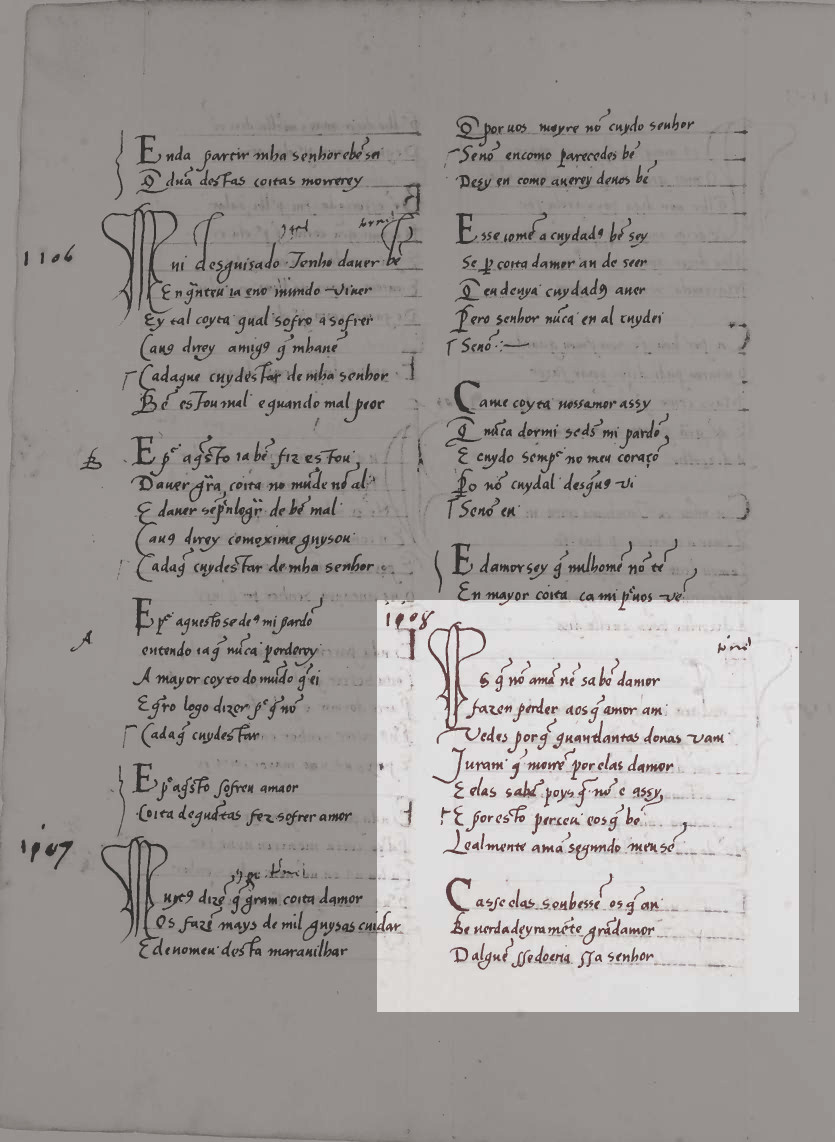 Enda partir mha senhor ebẽ sei
Q̃ dũa destas coitas morrerey
1106
Mui desguisado Tenho dauer bẽ
En q̃nteu ia eno mundo viuer
Ey tal coyta qual sofro a sofrer
Ca uꝯ direy amigꝯ q̃ mhauẽ
Cadaque cuydestar de mha senhor
Bẽ estou mal e quando mal peor
B
E pʳ aq̃sto ia bẽ fiz estou
Dauer grã coita no mũde nõ al
E dauer sẽpʳ logʳ de bẽ mal
Ca uꝯ direy comoxime guysou
Cadaq̃ cuydestar de mha senhor
A
E pʳ aquesto se deꝯ mi pardõ
entendo ia q̃ nũca perderey
A mayor coyta do mũdo q̃ ei
E q̃ro logo dizer pʳ q̃ nõ
Cadaq̃ cuydestar
E pʳ aq̃sto sofreu amaor
Coita de quãtas fez sofrer amor
1107
Muytꝯ dizẽ q̃ gram coita damor
Os fazẽ mays de mil guysas cuidar
E de no meu desta marauilhar
Q̃ por uos moyre nõ cuydo senhor
Se nõ en como parecedes bẽ
Desy en como auerey de uos bẽ
E sse ome a cuydadꝯ bẽ sey
Se p̱ coita damor an de seer
Q̃ eu deuya cuydadꝯ auer
Pero senhor nũca en al cuydei
Se nõ
Ca me coyta uossamor assy
Q̃ nũca dormi se dꝯ mi pardõ
E cuydo sempʳ no meu coraçõ
Po nõ cuydal des q̃ uꝯ ui
Se nõ en
E damor sey q̃ nulhomẽ nõ tẽ
En mayor coita ca mi pʳ uos uẽ
1108
Os q̃ nõ amã nẽ sabẽ damor
fazen perder aos q̃ amor am
Vedes por q̃ quantantas donas vam
Juram q̃ morrẽ por elas damor
E elas sabẽ poys q̃ nõ e assy
E por esto perceu eos q̃ bẽ
Lealmente amã segundo meu sẽ
Ca sse elas soubessẽ os q̃ an
Be uerdadeyramẽte grãdamor
Dalguẽ sse doeria ssa senhor